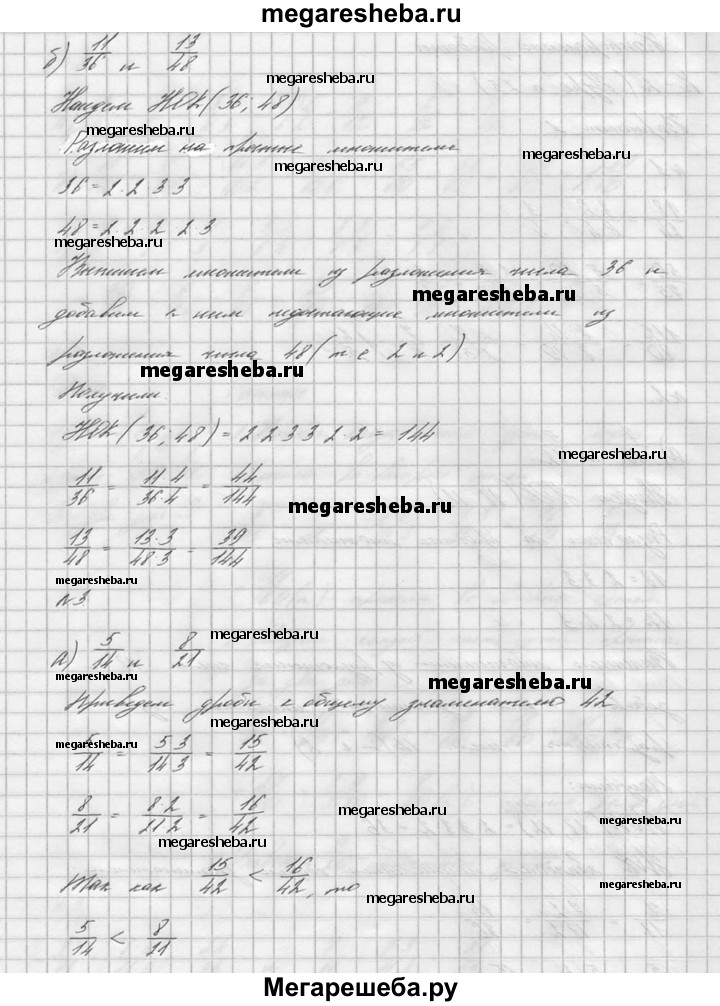 megaresheba.ru
б) 11/36 и 13/48
megaresheba.ru
Найдем НОК(36; 48)
megaresheba.ru
Разложим на простые множители
megaresheba.ru
36 = 2·2·3 3
48 = 2·2·2 2·3
megaresheba.ru
Выпишем множители из разложения числа 36 и
megaresheba.ru
добавим к ним недостающие множители из
разложения числа 48 (т е 2 и 2)
megaresheba.ru
Получили
НОК(36; 48) = 2 2 3 3 2·2 = 144
megaresheba.ru
11/36 = 11 4/36·4 = 44/144
megaresheba.ru
13/48 = 13·3/48 3 = 39/144
megaresheba.ru
megaresheba.ru
№3
megaresheba.ru
а) 5/14 и 8/21
megaresheba.ru
megaresheba.ru
Приведем дроби к общему знаменателю 42
megaresheba.ru
megaresheba.ru
5/14 = 5 3/14 3 = 15/42
8/21 = 8·2/21 2 = 16/42
megaresheba.ru
megaresheba.ru
megaresheba.ru
Так как 15/42 < 16/42, то
megaresheba.ru
megaresheba.ru
5/14 < 8/21
Мегарешеба.ру